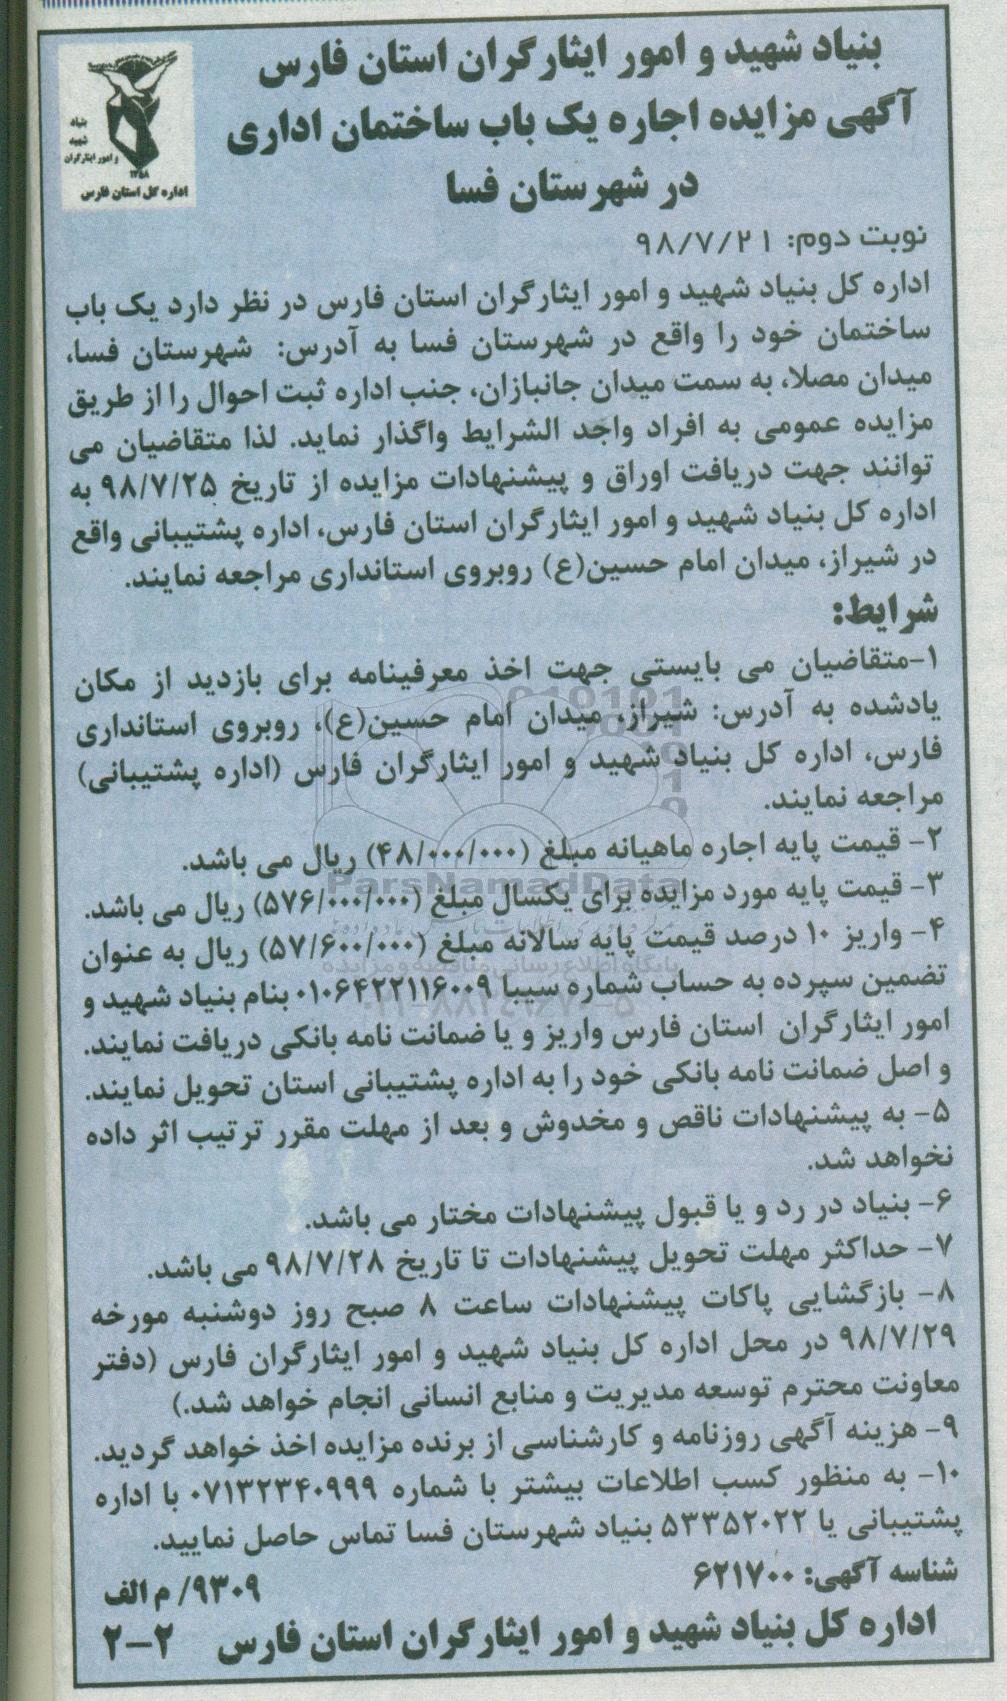 بنیاد شهید و امور ایثارگران استان فارس
آگهی مزایده اجاره یک باب ساختمان اداری
در شهرستان فسا
بنیاد
شهید
و امور ایثارگران
۱۳۵۸
اداره کل استان فارس
نوبت دوم: ۹۸/۷/۲۱
اداره کل بنیاد شهید و امور ایثارگران استان فارس در نظر دارد یک باب
ساختمان خود را واقع در شهرستان فسا به آدرس: شهرستان فسا،
میدان مصلا، به سمت میدان جانبازان، جنب اداره ثبت احوال را از طریق
مزایده عمومی به افراد واجد الشرایط واگذار نماید. لذا متقاضیان می
توانند جهت دریافت اوراق و پیشنهادات مزایده از تاریخ ۹۸/۷/۲۵ به
اداره کل بنیاد شهید و امور ایثارگران استان فارس، اداره پشتیبانی واقع
در شیراز، میدان امام حسین(ع) روبروی استانداری مراجعه نمایند.
شرایط:
۱-متقاضیان می بایستی جهت اخذ معرفینامه برای بازدید از مکان
یادشده به آدرس: شیراز، میدان امام حسین(ع)، روبروی استانداری
فارس، اداره کل بنیاد شهید و امور ایثارگران فارس (اداره پشتیبانی)
مراجعه نمایند.
۲- قیمت پایه اجاره ماهیانه مبلغ (۴۸/۰۰۰/۰۰۰) ریال می باشد.
ParsNamadData
۳- قیمت پایه مورد مزایده برای یکسال مبلغ (۵۷۶/۰۰۰/۰۰۰) ریال می باشد.
۴- واریز ۱۰ درصد قیمت پایه سالانه مبلغ (۵۷/۶۰۰/۰۰۰) ریال به عنوان
پایگاه اطلاع رسانی مناقصه و مزایده
تضمین سپرده به حساب شماره سیبا ۰۱۰۶۴۲۲۱۱۶۰۰۹ بنام بنیاد شهید و
امور ایثارگران استان فارس واریز و یا ضمانت نامه بانکی دریافت نمایند.
و اصل ضمانت نامه بانکی خود را به اداره پشتیبانی استان تحویل نمایند.
۵- به پیشنهادات ناقص و مخدوش و بعد از مهلت مقرر ترتیب اثر داده
نخواهد شد.
۶- بنیاد در رد و یا قبول پیشنهادات مختار می باشد.
۷- حداکثر مهلت تحویل پیشنهادات تا تاریخ ۹۸/۷/۲۸ می باشد.
۸- بازگشایی پاکات پیشنهادات ساعت ۸ صبح روز دوشنبه مورخه
۹۸/۷/۲۹ در محل اداره کل بنیاد شهید و امور ایثارگران فارس (دفتر
معاونت محترم توسعه مدیریت و منابع انسانی انجام خواهد شد.)
۹- هزینه آگهی روزنامه و کارشناسی از برنده مزایده اخذ خواهد گردید.
۱۰- به منظور کسب اطلاعات بیشتر با شماره ۰۷۱۳۲۳۴۰۹۹۹ با اداره
پشتیبانی یا ۵۳۳۵۲۰۲۲ بنیاد شهرستان فسا تماس حاصل نمایید.
شناسه آگهی: ۶۲۱۷۰۰
۹۳۰۹/ م الف
اداره کل بنیاد شهید و امور ایثارگران استان فارس ۲-۲